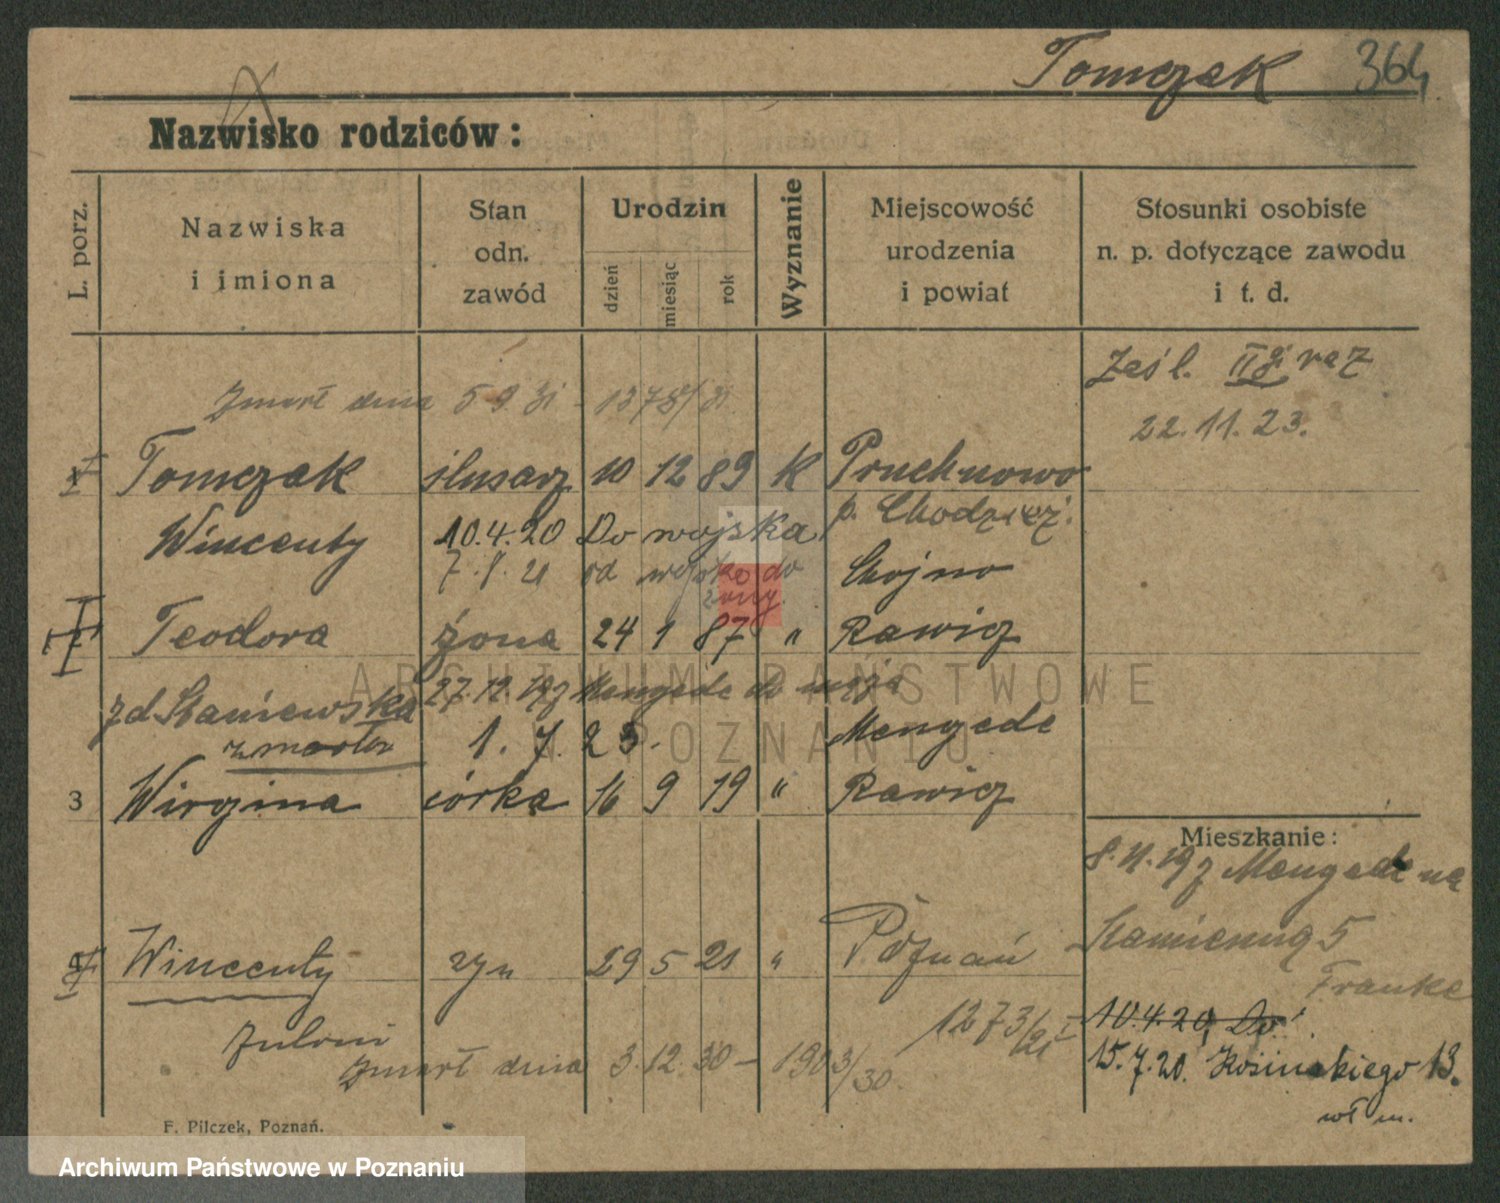 Tomczak 364
Nazwisko rodziców:
L. porz.
Nazwiska
i imiona
Stan
odn.
zawód
Urodzin
dzień
miesiąc
rok
Wyznanie
Miejscowość
urodzenia
i powiat
Stosunki osobiste
n. p. dotyczące zawodu
i t. d.
Zmarł dnia 5 9 31 - 1378/31
Zaśl. II gi raz
22.11.23.
Tomczak ślusarz 10 12 89 K Pruchnowo
p. Chodzież.
Wincenty 10.4.20 Do wojska
7. 21 od wojska do żony. Chojno
Teodora żona 24 1 87 " Rawicz
zd. Staniewska 27.12.19 z Mengede do męża
zmarła 1. 7. 23. Mengede
3 Wirgina córka 16 9 19 " Rawicz
Mieszkanie:
8.11.19 z Mengede na
Wincenty syn 29 5 21 " Poznań
Kamienną 5
Franke
1273/21 I
10.4.20, Do
Zmarł dnia 3.12.30 - 1903/30.
15.7.20. Kosińskiego 13.
wł m.
F. Pilczek, Poznań.
ARCHIWUM PAŃSTWOWE
W POZNANIU
Archiwum Państwowe w Poznaniu